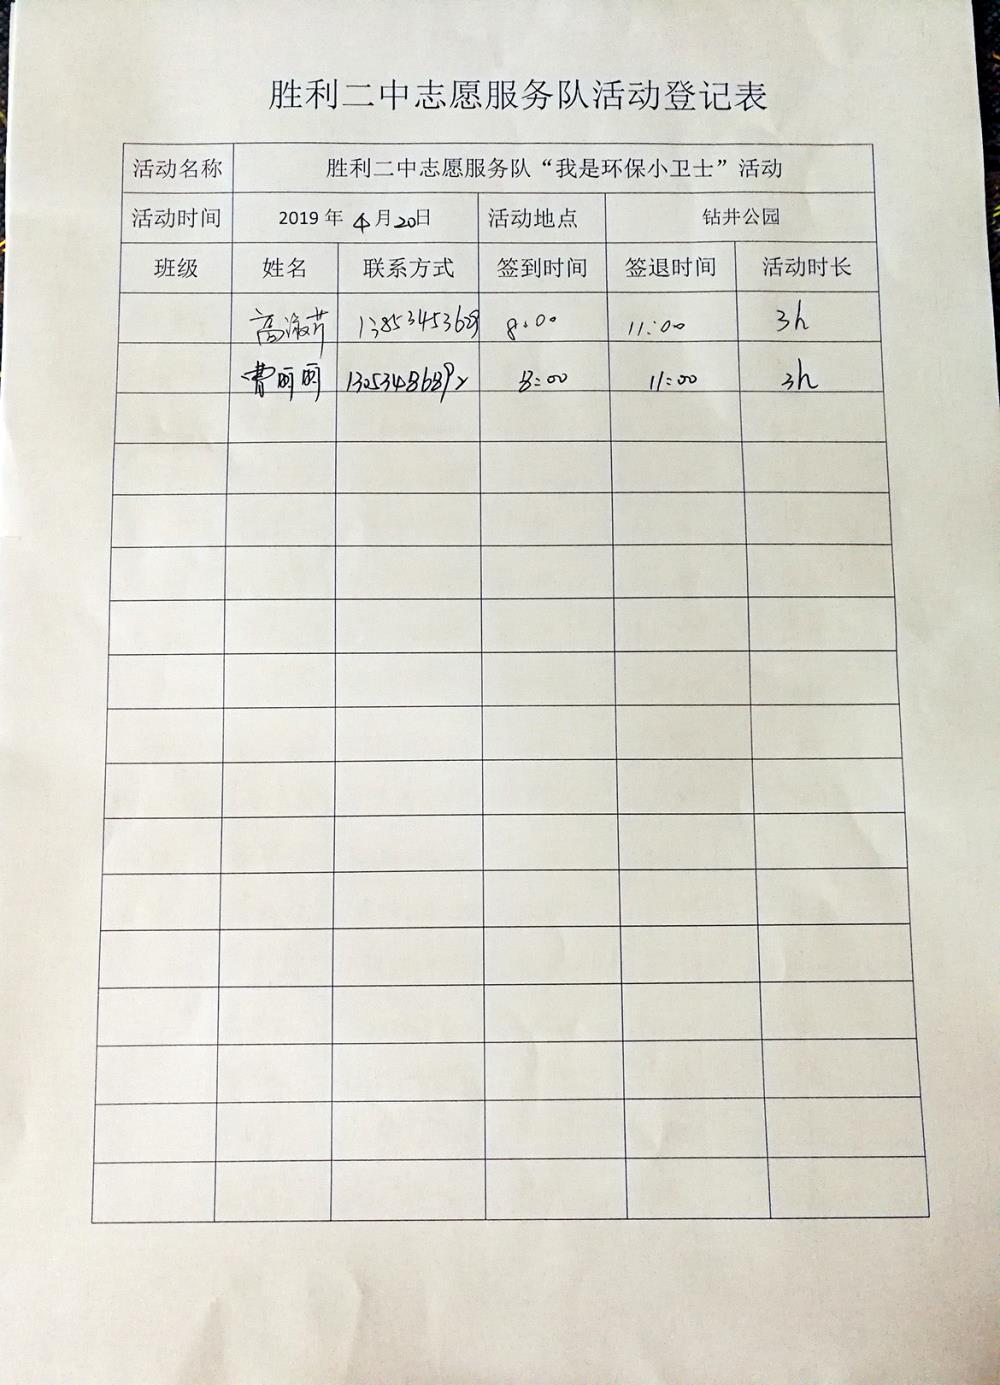 胜利二中志愿服务队活动登记表
活动名称 胜利二中志愿服务队“我是环保小卫士”活动
活动时间 2019 年 4 月 20 日 活动地点 钻井公园
班级 姓名 联系方式 签到时间 签退时间 活动时长
高淑芹 13853453629 8:00 11:00 3h
曹丽丽 13053486892 8:00 11:00 3h